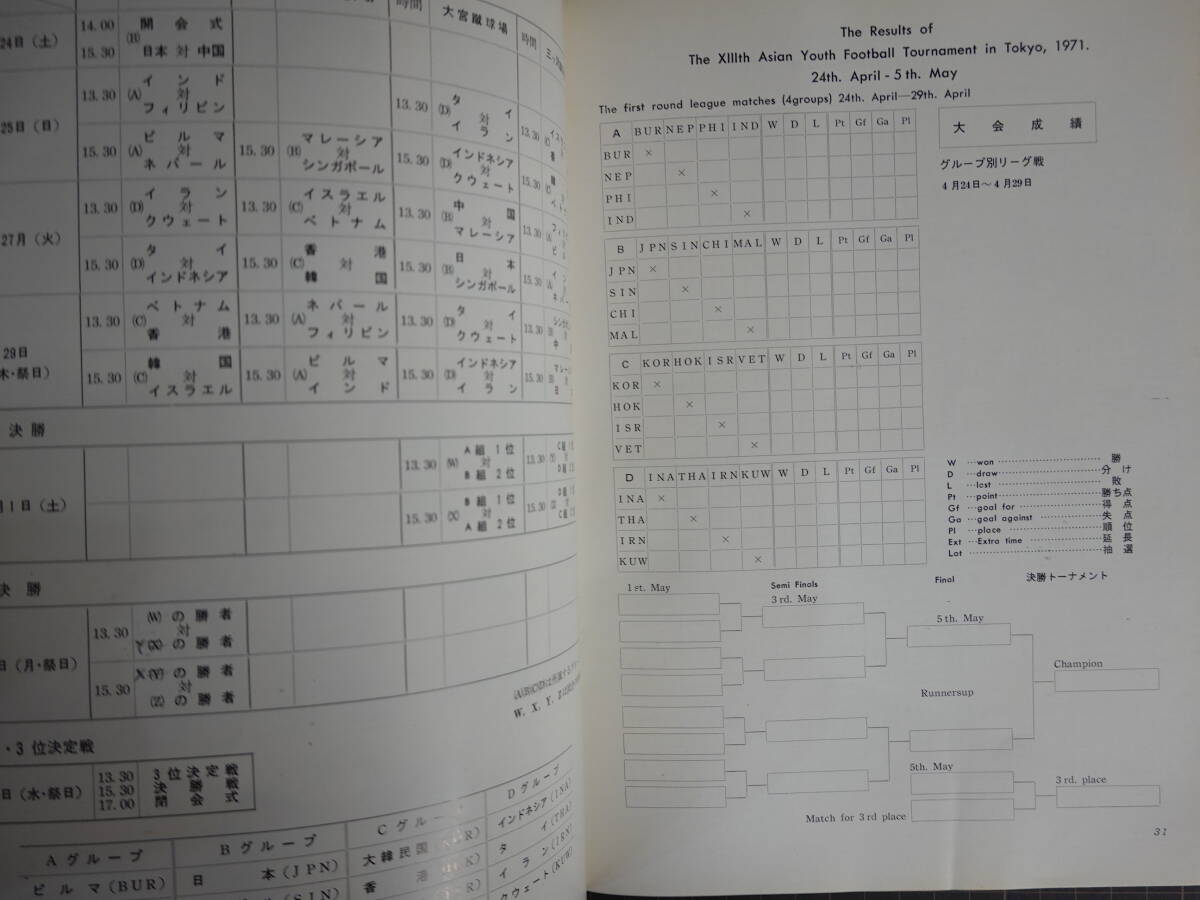 時間 大宮蹴球場 時間
24日（土） 14.00 開会式
15.30 (B) 日本 対 中国
25日（日） 13.30 (A) インド 対 フィリピン 13.30 (D) タイ 対 イラン 13.30
15.30 (A) ビルマ 対 ネパール 15.30 (B) マレーシア 対 シンガポール 15.30 (D) インドネシア 対 クウェート 15.30
27月（火） 13.30 (D) イラン 対 クウェート 13.30 (C) イスラエル 対 ベトナム 13.30 (B) 中国 対 マレーシア 13.30
15.30 (D) タイ 対 インドネシア 15.30 (C) 香港 対 韓国 15.30 (B) 日本 対 シンガポール 15.30
29日 木・祭日） 13.30 (C) ベトナム 対 香港 13.30 (A) ネパール 対 フィリピン 13.30 (D) タイ 対 クウェート 13.30
15.30 (C) 韓国 対 イスラエル 15.30 (A) ビルマ 対 インド 15.30 (D) インドネシア 対 イラン 15.30
決勝
月1日（土） 13.30 (W) A組1位 対 B組2位 13.30
15.30 (X) B組1位 対 A組2位 15.30
決勝
日（月・祭日） 13.30 (W)の勝者 対 (X)の勝者
15.30 (Y)の勝者 対 (Z)の勝者
・3位決定戦
日（水・祭日） 13.30 3位決定戦
15.30 決勝戦
17.00 閉会式
Aグループ Bグループ Cグループ Dグループ
ビルマ(BUR) 日本(JPN) 大韓民国 インドネシア(INA)
香港 タイ(THA)
イラン(IRN)
クウェート(KUW)
The Results of
The XIIIth Asian Youth Football Tournament in Tokyo, 1971.
24th. April - 5th. May
The first round league matches (4groups) 24th. April—29th. April
A BUR NEP PHI IND W D L Pt Gf Ga Pl
BUR ×
NEP ×
PHI ×
IND ×
大会成績
グループ別リーグ戦
4月24日～4月29日
B JPN SIN CHI MAL W D L Pt Gf Ga Pl
JPN ×
SIN ×
CHI ×
MAL ×
C KOR HOK ISR VET W D L Pt Gf Ga Pl
KOR ×
HOK ×
ISR ×
VET ×
D INA THA IRN KUW W D L Pt Gf Ga Pl
INA ×
THA ×
IRN ×
KUW ×
W …won………勝
D …draw………分け
L …lost………敗
Pt …point………勝ち点
Gf …goal for………得点
Ga …goal against………失点
Pl …place………順位
Ext …Extra time………延長
Lot………抽選
1st. May Semi Finals Final 決勝トーナメント
3rd. May
5th. May
Champion
Runnersup
5th. May
3rd. place
Match for 3rd place
31